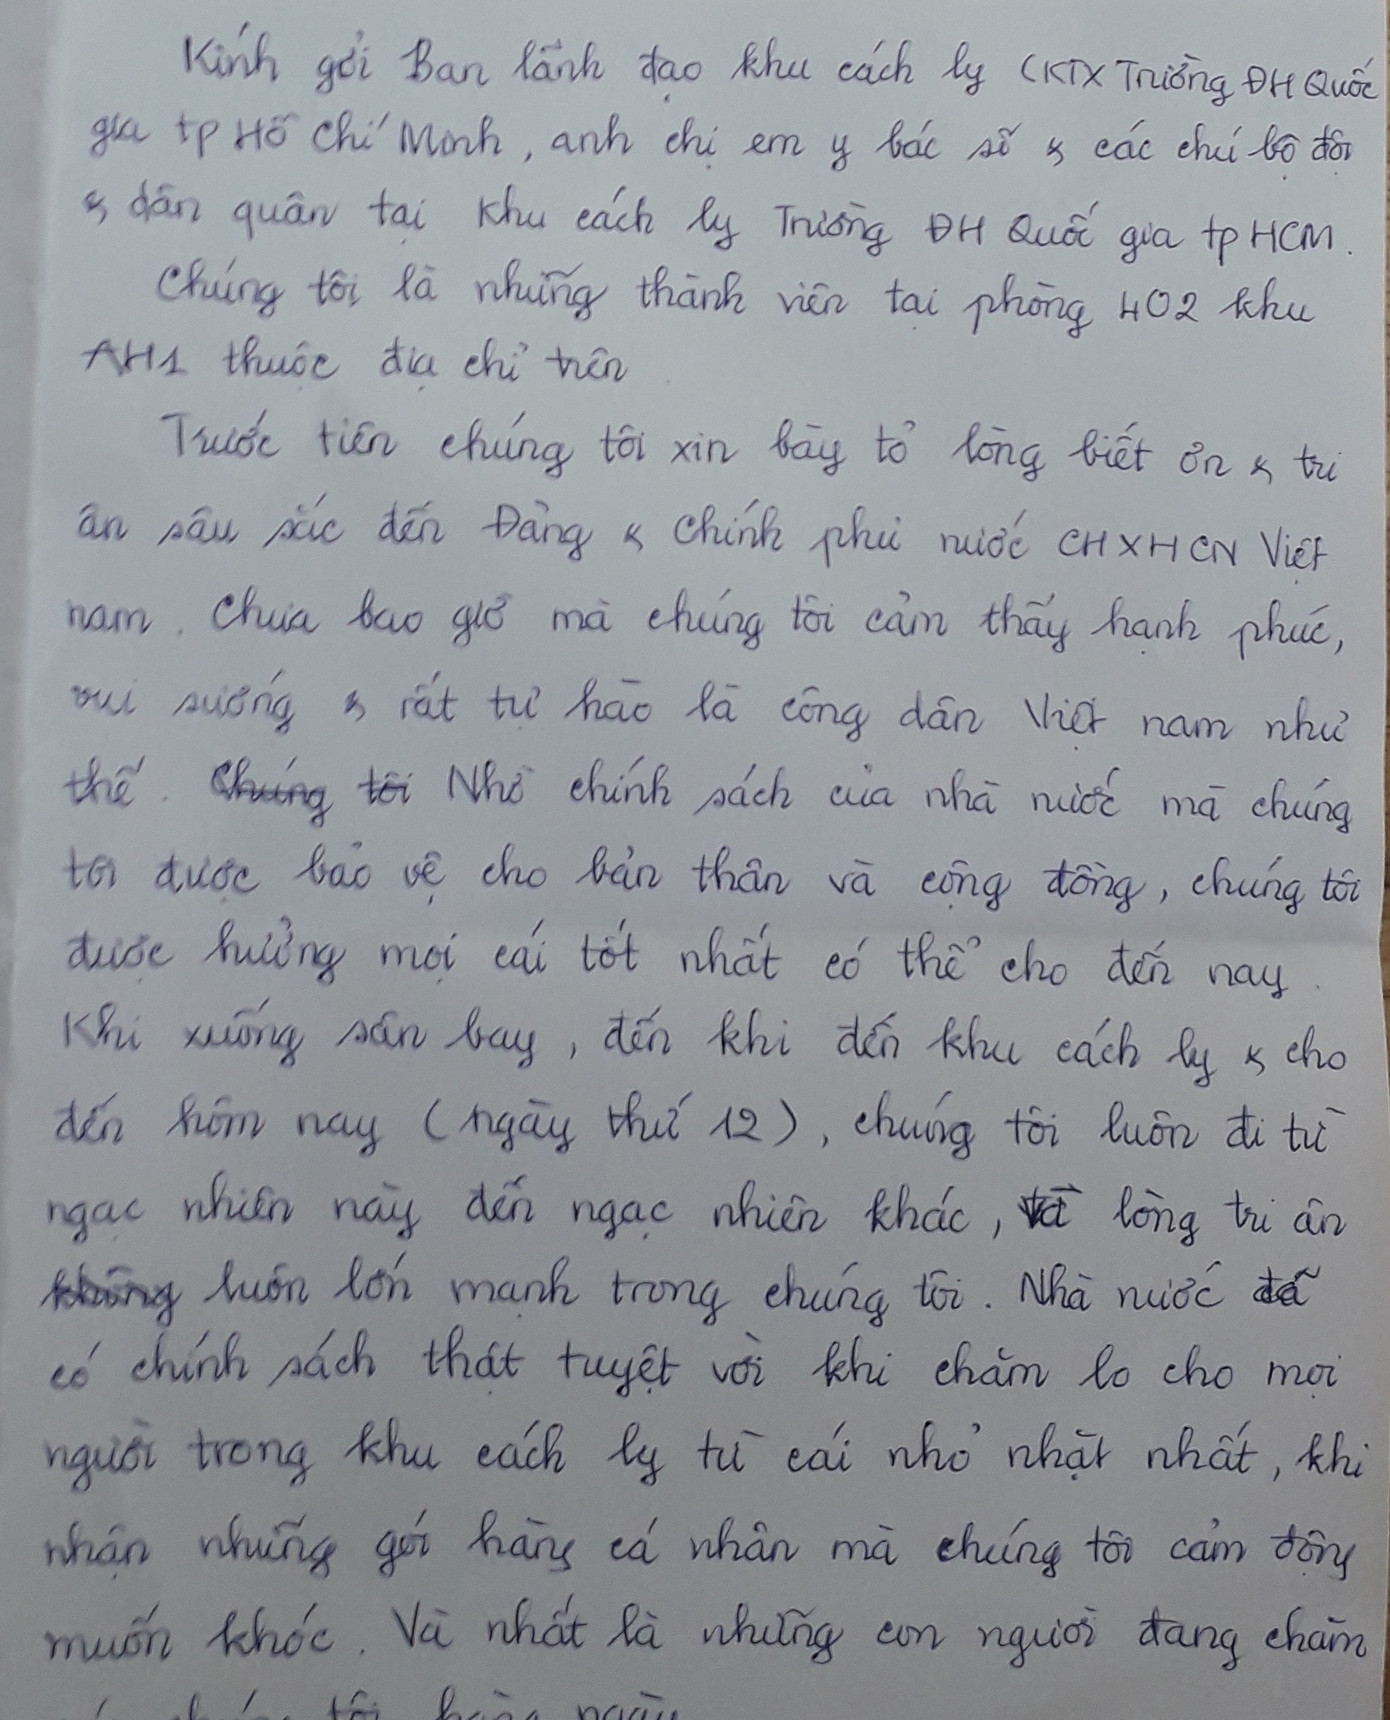 Kính gởi Ban lãnh đạo khu cách ly (KTX Trường ĐH Quốc
gia tp Hồ Chí Minh, anh chị em y bác sĩ & các chú bộ đội
& dân quân tại khu cách ly Trường ĐH Quốc gia tp HCM.
Chúng tôi là những thành viên tại phòng 402 khu
AH1 thuộc địa chỉ trên
Trước tiên chúng tôi xin bày tỏ lòng biết ơn & tri
ân sâu sắc đến Đảng & Chính phủ nước CHXHCN Việt
nam. Chưa bao giờ mà chúng tôi cảm thấy hạnh phúc,
vui sướng & rất tự hào là công dân Việt nam như
thế. Chúng tôi Nhờ chính sách của nhà nước mà chúng
tôi được bảo vệ cho bản thân và cộng đồng, chúng tôi
được hưởng mọi cái tốt nhất có thể cho đến nay.
Khi xuống sân bay, đến khi đến khu cách ly & cho
đến hôm nay (ngày thứ 12), chúng tôi luôn đi từ
ngạc nhiên này đến ngạc nhiên khác, và lòng tri ân
không luôn lớn mạnh trong chúng tôi. Nhà nước đã
có chính sách thật tuyệt vời khi chăm lo cho mọi
người trong khu cách ly từ cái nhỏ nhặt nhất, khi
nhận những gói hàng cá nhân mà chúng tôi cảm động
muốn khóc. Và nhất là những con người đang chăm
tôi hàng ngày